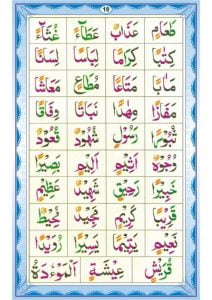 19
طَعَامٍ عَذَابٌ عَطَآءً غُثَآءً
كِتٰبًا كِرَامًا لِبَاسًا لِسَانًا
مَاٰبًا مَتَاعًا مُطَاعٍ مَعَاشًا
مَفَازًا مِهٰدًا نَبَاتًا وِفَاقًا
ثُبُوْرًا رَسُوْلٍ شُهُوْدٌ قُعُوْدٌ
وُجُوْهٌ اَثِيْمٍ اَلِيْمٍ بَصِيْرًا
خَبِيْرًا رَحِيْقٍ شَهِيْدٌ عَظِيْمٍ
قَرِيْبًا كَرِيْمٍ مَجِيْدٌ مُحِيْطٌ
نَعِيْمٍ يَتِيْمًا يَسِيْرًا رُوَيْدًا
قُرَيْشٍ عِيْشَةٍ اَلْمَوْءٗدَةُ